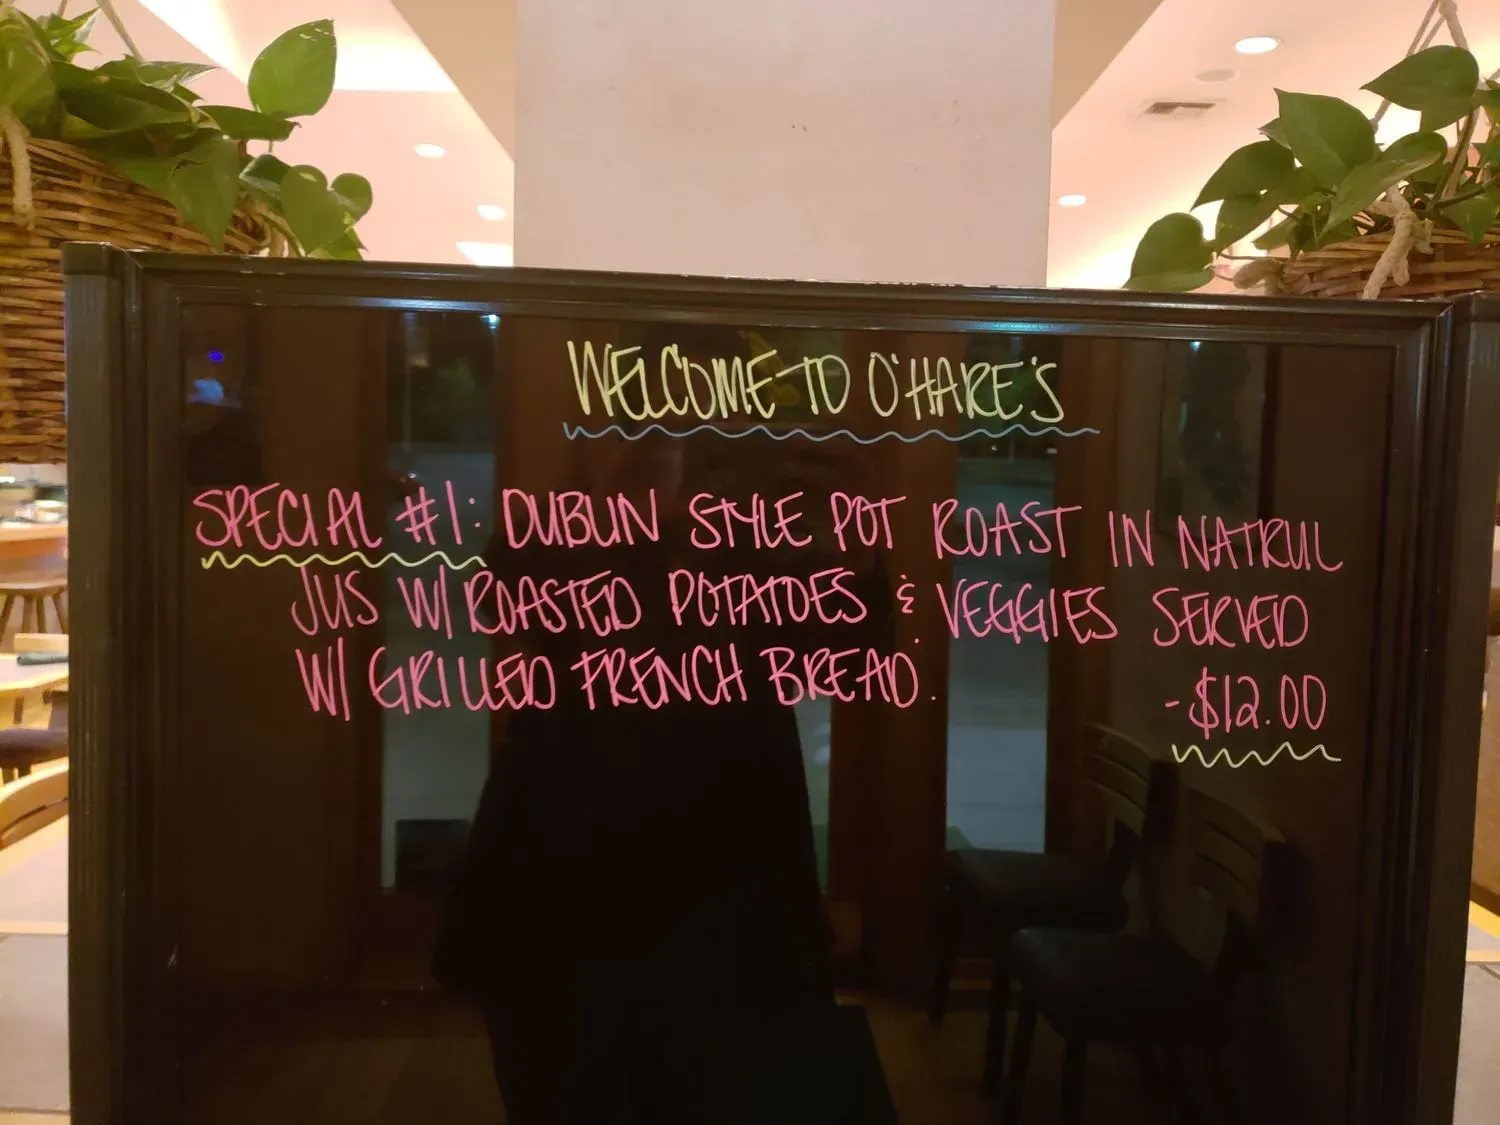 WELCOME TO O'HARE'S
SPECIAL #1: DUBLIN STYLE POT ROAST IN NATRUL
JUS W/ ROASTED POTATOES & VEGGIES SERVED
W/ GRILLED FRENCH BREAD. -$12.00